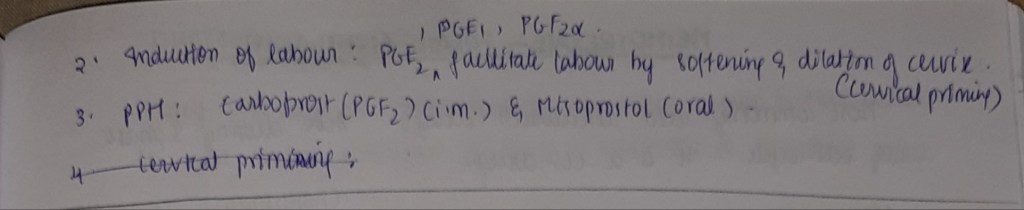 , PGE1, PGF2α.
2. Induction of labour : PGE2 facilitate labour by softening & dilation of cervix.
(cervical priming)
3. PPH : Carboprost (PGF2) (i.m.) & Misoprostol (oral).
4. cervical priming :